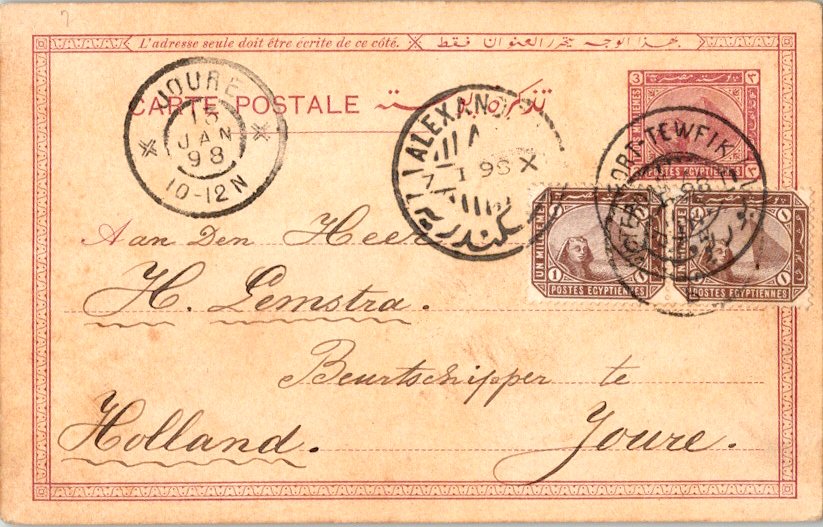 L'adresse seule doit être écrite de ce côté. بهذا الوجه يحرر العنوان فقط
CARTE POSTALE تذكرة بوستة
3 بوستة مصرية ٣
3 MILLIEMES
POSTES EGYPTIENNES
JOURE
15
JAN
98
10-12N
ALEXAND
I 98 X
اسكندرية
PORT-TEWFIK
98
UN MILLIEME
1 1
POSTES EGYPTIENNES
1 1
POSTES EGYPTIENNES
Aan Den Heer
H. Lemstra.
Beurtschipper te
Holland. Joure.